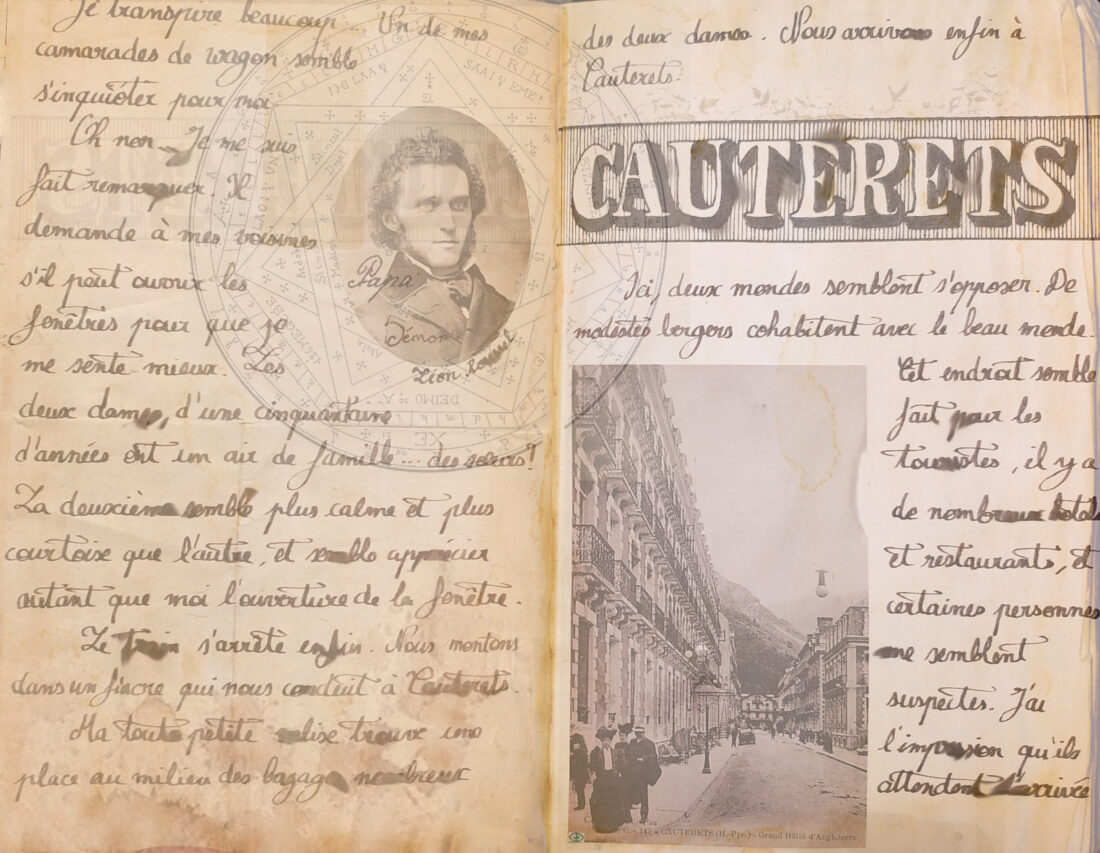 Je transpire beaucoup. Un de mes
camarades de wagon semble
s'inquiéter pour moi.
Oh non. Je me suis
fait remarquer. Il
demande à mes voisines
s'il peut ouvrir les
fenêtres pour que je
me sente mieux. Les
deux dames, d'une cinquantaine
d'années ont un air de famille... des soeurs!
La deuxième semble plus calme et plus
courtoise que l'autre, et semble apprécier
autant que moi l'ouverture de la fenêtre.
Le train s'arrête enfin. Nous montons
dans un fiacre qui nous conduit à Cauterets.
Ma toute petite valise trouve une
place au milieu des bagages nombreux
Papa
Démon
Léon
des deux dames. Nous arrivons enfin à
Cauterets.
CAUTERETS
Ici, deux mondes semblent s'opposer. De
modestes bergers cohabitent avec le beau monde.
Cet endroit semble
fait pour les
touristes, il y a
de nombreux hotels
et restaurants, et
certaines personnes
me semblent
suspectes. J'ai
l'impression qu'ils
attendent l'arrivée
CAUTERETS (H.-Pyr.) - Grand Hôtel d'Angleterre